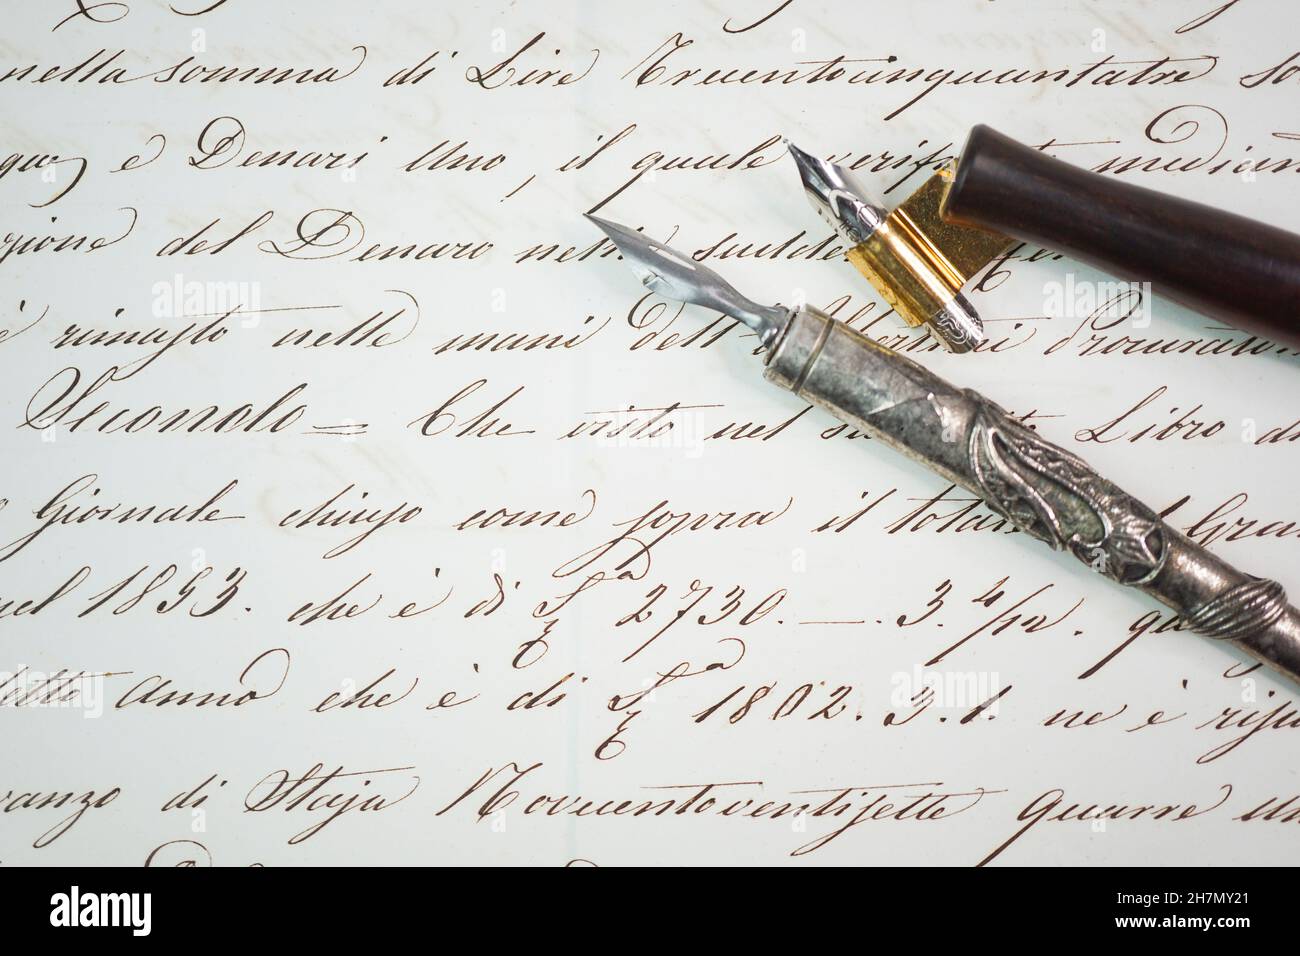 nella somma di Lire Trecentocinquantatre so
è Denari Uno, il quale median
zione del Denaro nell
è rimasto nelle mani dell'
Secondo = Che visto nel Libro di
Giornale chiuso come sopra il total Gra
nel 1853. che è di 2730. — . 3. 4/12.
detto Anno che è di 1802. 3. 1. ne è risu
ranzo di Staja Novecentoventisette quarre un
alamy
Image ID: 2H7MY21
www.alamy.com